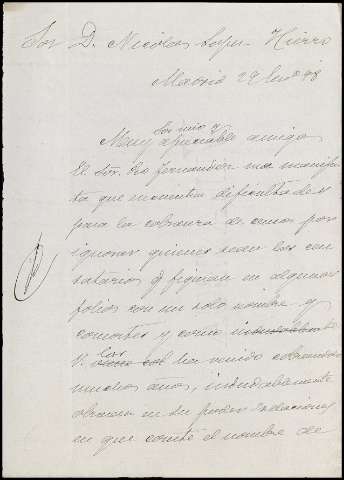 Sor D. Nicolas Lopez Hierro
Madrid 29 98
Sor mio y
Muy apreciable amigo
El Sor. Fernandez me manifies
ta que encuentra dificultades
para la cobranza de censos por
ignorar quienes sean los cen
satarios q figuran en algunos
folios con un solo nombre y
consortes y como
V. los ha venido cobrando
muchos años, indudablemente
obraran en su poder relaciones
en que conste el nombre de